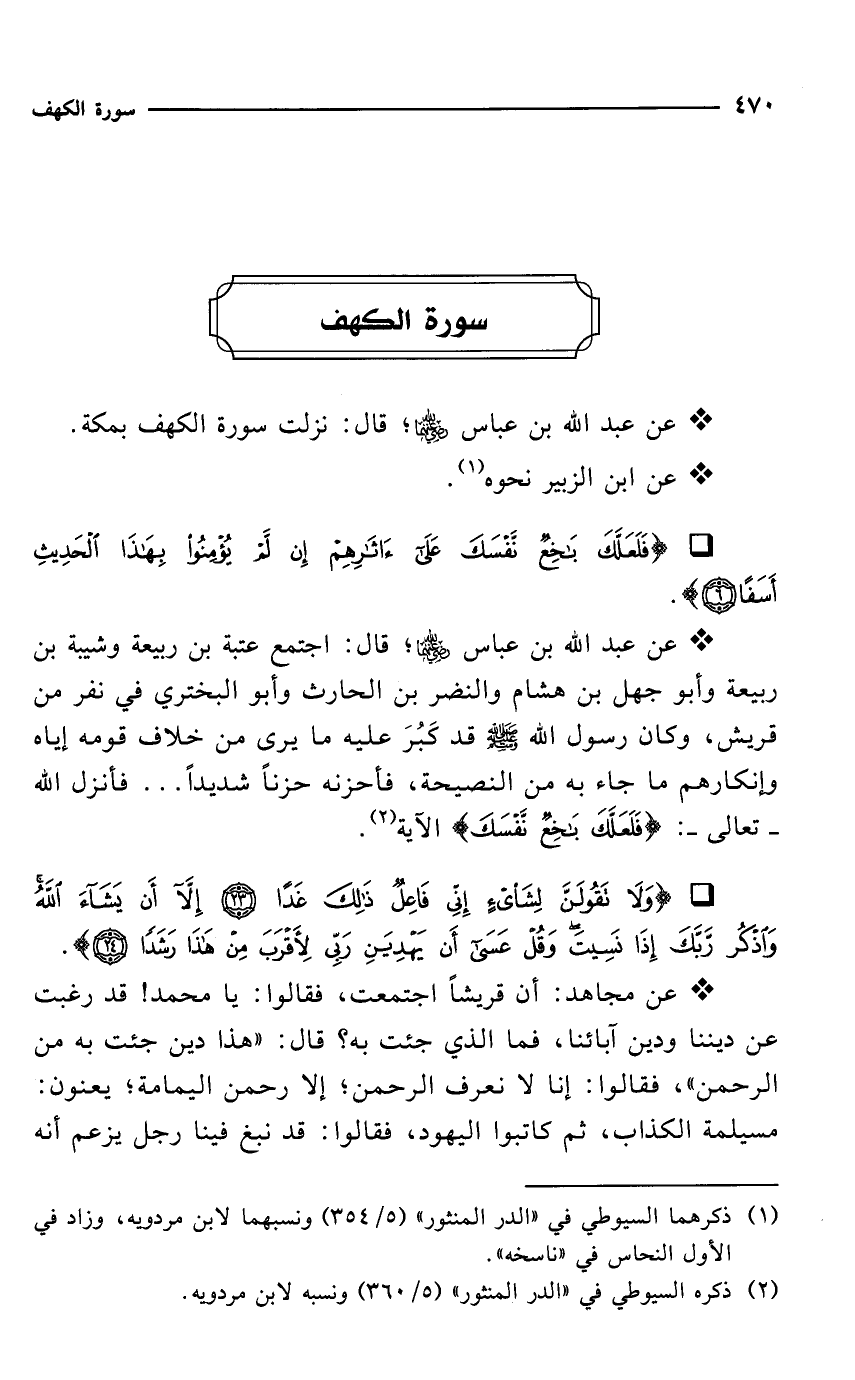 ٤٧٠ سورة الكهف
سورة الكهف
❖ عن عبد الله بن عباس رضي الله عنهما؛ قال: نزلت سورة الكهف بمكة.
❖ عن ابن الزبير نحوه(١).
❑ ﴿فَلَعَلَّكَ بَاخِعٌ نَّفْسَكَ عَلَىٰٓ ءَاثَارِهِمْ إِن لَّمْ يُؤْمِنُوا۟ بِهَـٰذَا ٱلْحَدِيثِ
أَسَفًا ٦﴾.
❖ عن عبد الله بن عباس رضي الله عنهما؛ قال: اجتمع عتبة بن ربيعة وشيبة بن
ربيعة وأبو جهل بن هشام والنضر بن الحارث وأبو البختري في نفر من
قريش، وكان رسول الله ﷺ قد كَبُرَ عليه ما يرى من خلاف قومه إياه
وإنكارهم ما جاء به من النصيحة، فأحزنه حزناً شديداً... فأنزل الله
ـ تعالى ـ: ﴿فَلَعَلَّكَ بَـٰخِعٌ نَّفْسَكَ﴾ الآية(٢).
❑ ﴿وَلَا تَقُولَنَّ لِشَا۟ىْءٍ إِنِّى فَاعِلٌ ذَٰلِكَ غَدًا ٢٣ إِلَّآ أَن يَشَآءَ ٱللَّهُ ۚ
وَٱذْكُر رَّبَّكَ إِذَا نَسِيتَ وَقُلْ عَسَىٰٓ أَن يَهْدِيَنِ رَبِّى لِأَقْرَبَ مِنْ هَـٰذَا رَشَدًا ٢٤﴾.
❖ عن مجاهد: أن قريشاً اجتمعت، فقالوا: يا محمد! قد رغبت
عن ديننا ودين آبائنا، فما الذي جئت به؟ قال: «هذا دين جئت به من
الرحمن»، فقالوا: إنا لا نعرف الرحمن؛ إلا رحمن اليمامة؛ يعنون:
مسيلمة الكذاب، ثم كاتبوا اليهود، فقالوا: قد نبغ فينا رجل يزعم أنه
(١) ذكرهما السيوطي في «الدر المنثور» (٥/ ٣٥٤) ونسبهما لابن مردويه، وزاد في
الأول النحاس في «ناسخه».
(٢) ذكره السيوطي في «الدر المنثور» (٥/ ٣٦٠) ونسبه لابن مردويه.